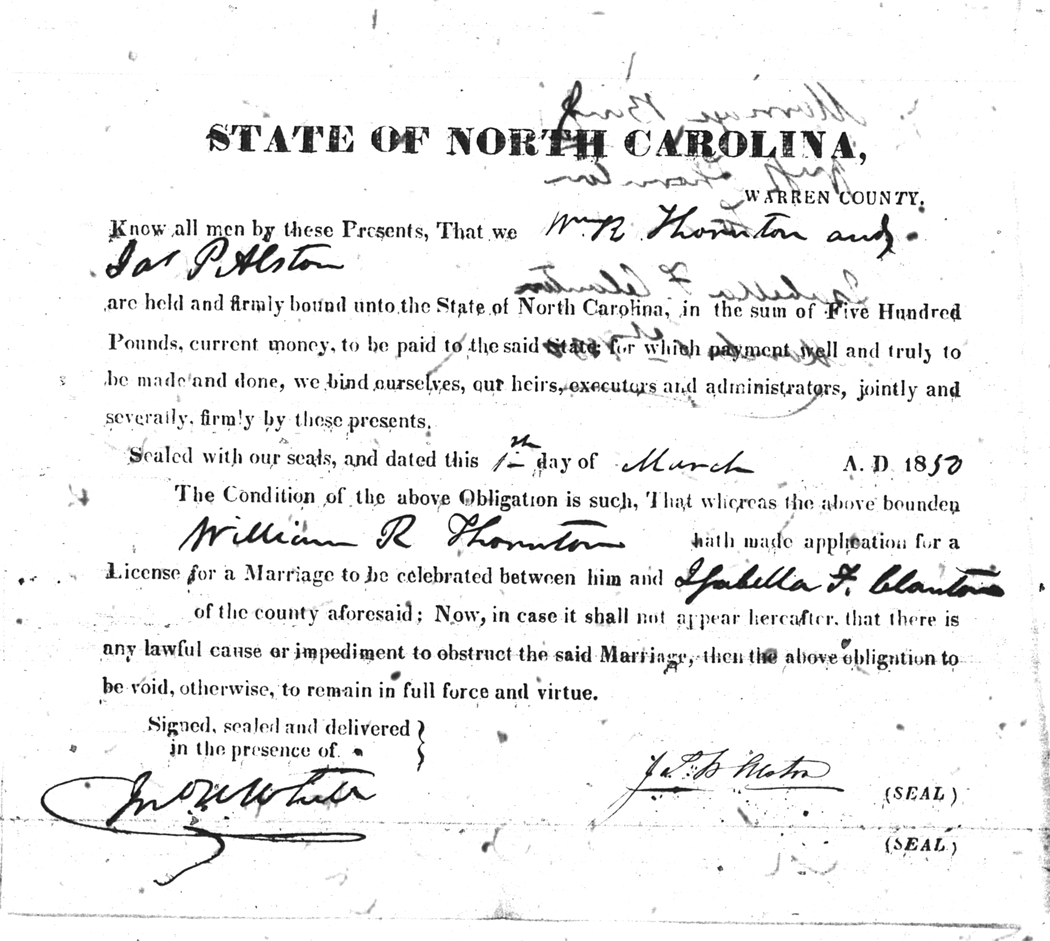 STATE OF NORTH CAROLINA,
WARREN COUNTY.
Know all men by these Presents, That we Wm R Thornton and
Jas P Alston
are held and firmly bound unto the State of North Carolina, in the sum of Five Hundred
Pounds, current money, to be paid to the said State, for which payment well and truly to
be made and done, we bind ourselves, our heirs, executors and administrators, jointly and
severally, firmly by these presents.
Sealed with our seals, and dated this day of March A. D. 1850
The Condition of the above Obligation is such, That whereas the above bounden
William R Thornton hath made application for a
License for a Marriage to be celebrated between him and Isabella F. Clanton
of the county aforesaid; Now, in case it shall not appear hereafter, that there is
any lawful cause or impediment to obstruct the said Marriage, then the above obligation to
be void, otherwise, to remain in full force and virtue.
Signed, sealed and delivered
in the presence of
Jas P Alston (SEAL)
White
(SEAL)